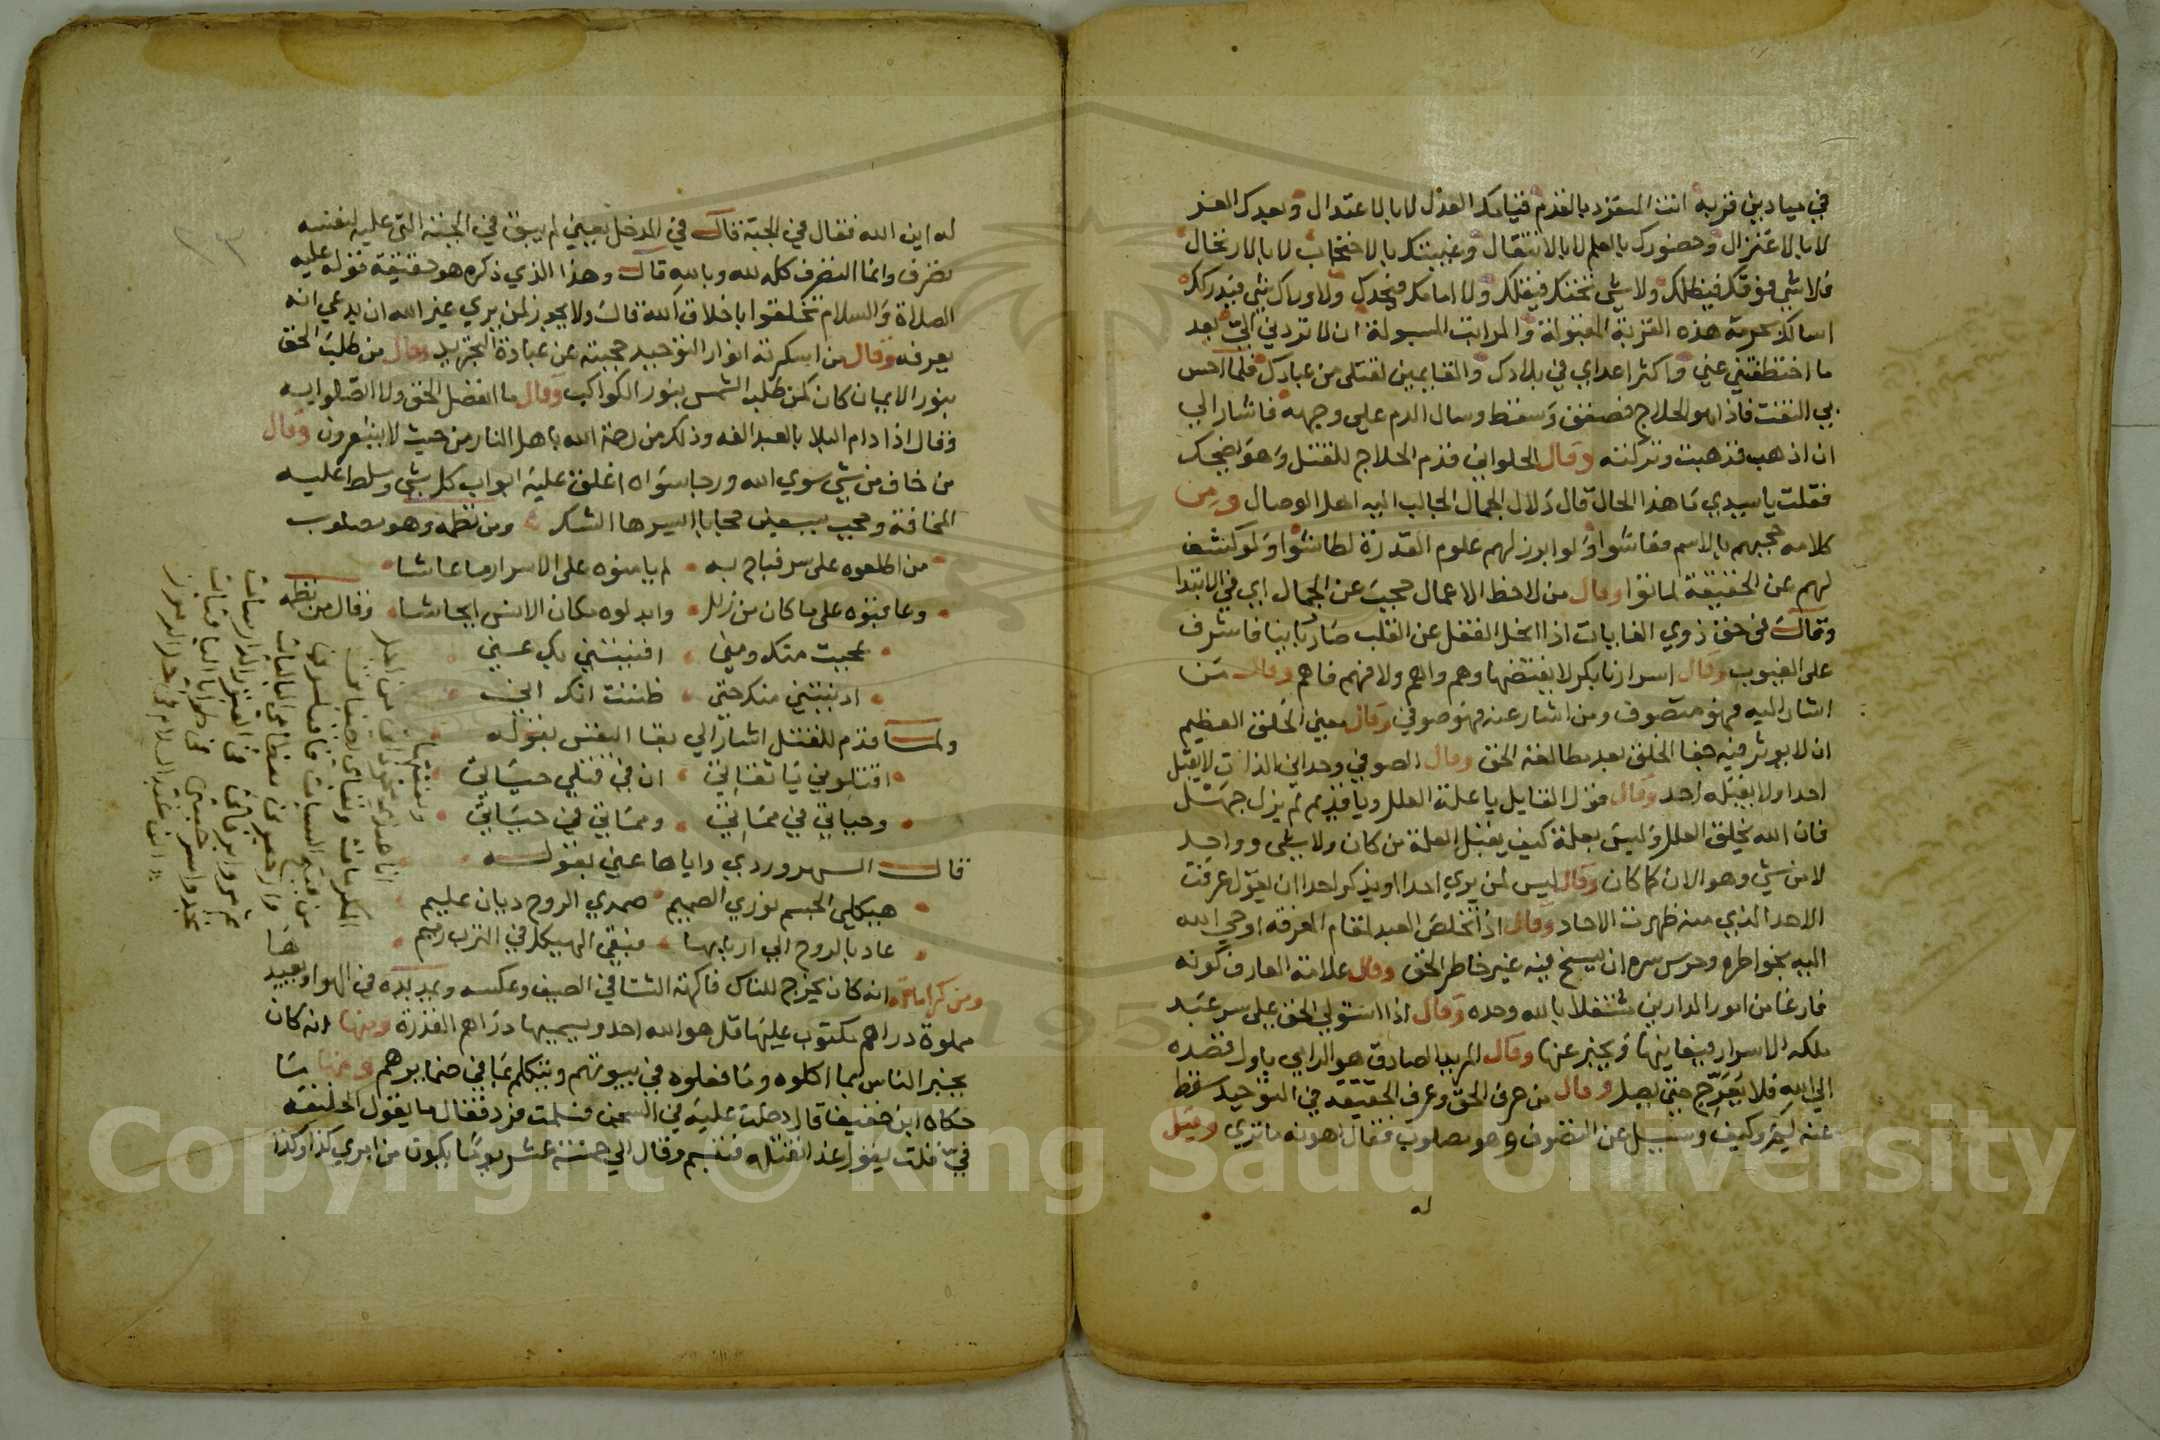 في ميادين قربه انت المتفرد بالقدم قيامك العدل لا بالاعتدال وبعدك العز
لا بالاعتزال وحضورك بالعلم لا بالانتقال وغيبتك بالاحتجاب لا بالارتحال
فلا شي فوقك فيظلك ولا شي تحتك فيقلك ولا امامك فيجدك ولا وراك شي فيدركك
اسالك بحرمة هذه التربة المقبولة والمراتب المسولة ان لا تردني الي بعد
ما اختطفتني عني واكثر اعداي في بلادك والقايمين لقتلي من عبادك فلما احس
بي التفت فاذا هو الحلاج فصعق وسقط وسال الدم على وجهه فاشار الي
ان اذهب فذهبت وتركته وقال الحلواني قدم الحلاج للقتل وهو يضحك
فقلت يا سيدي ما هذا الحال قال دلال الجمال الجالب اليه اهل الوصال ومن
كلامه حجبهم بالاسم فعاشوا ولو ابرز لهم علوم القدرة لطاشوا ولو كشف
لهم عن الحقيقة لماتوا وقال من لاحظ الاعمال حجب عن الجمال اي في الابتدا
وقال في حق ذوي الغايات اذا انحل القفل عن القلب صار ربانيا فاشرف
على الغيوب وقال اسرارنا بكر لا يفتضها وهم واهم ولا فهم فاهم وقال من
اشار اليه فهو متصوف ومن اشار عنه فهو صوفي وقال معنى الخلق العظيم
ان لا يوثر فيه جفا الخلق بعد مطالعة الحق وقال الصوفي وحداني الذات لا يقبل
احدا ولا يقبله احد وقال قول القايل يا علة العلل ويا قديم لم يزل جهل
فان الله يخلق العلل وليس بعلة كيف يقبل العلة من كان ولا شي واوجد
لا من شي وهو الان كما كان وقال ليس لمن يري احدا او يذكر احدا ان يقول عرفت
الاحد الذي منه ظهرت الاحاد وقال اذا تخلص العبد لمقام المعرفة اوحى الله
اليه بخواطره وحرس سره ان يسنح فيه غير خاطر الحق وقال علامة العارف كونه
فارغا من امور الدارين مشتغلا بالله وحده وقال اذا استولى الحق على سر عبد
ملكه الاسرار فيعاينها ويخبر عنها وقال المريد الصادق هو الرامي باول قصده
الي الله فلا يعرج حتى يصل وقال من عرف الحق وعرف الحقيقة في التوحيد سقط
عنه لم وكيف وسيل عن التصوف وهو مصلوب فقال اهونه ما تري وقيل
له
له اين الله فقال في الجبة قال في المدخل يعني لم يبق في الجبة التي عليه لنفسه
تصرف وانما التصرف كله لله وبالله قال وهذا الذي ذكره هو حقيقة قوله عليه
الصلاة والسلام تخلقوا باخلاق الله قال ولا يجوز لمن يري غير الله ان يدعي انه
يعرفه وقال من اسكرته انوار التوحيد حجبته عن عبادة التجريد وقال من طلب الحق
بنور الايمان كان كمن طلب الشمس بنور الكواكب وقال ما انفصل الحق ولا اتصلوا به
وقال اذا دام البلا بالعبد الفه وذلك من رحمة الله باهل النار من حيث لا يشعرون وقال
من خاف من شي سوي الله ورجا سواه اغلق عليه ابواب كل شي وسلط عليه
المخافة وحجب بسبعين حجابا ايسرها الشك ومن نظمه وهو مصلوب
من اطلعوه على سر فباح به لم يامنوه على الاسرار ما عاشا
وعاقبوه على ما كان من زلل وابدلوه مكان الانس ايحاشا وقال من نظمه
عجبت منك ومني افنيتني بك عني
ادنيتني منك حتى ظننت انك اني
ولما قدم للقتل اشار الي بقا النفس بقوله
اقتلوني يا ثقاتي ان في قتلي حياتي
وحياتي في مماتي ومماتي في حياتي
قال السهروردي واياها عني بقوله
هيكلي الجسم نوري الصميم صمدي الروح ديان عليم
عاد بالروح الي اربابها فبقي الهيكل في الترب رميم
ومن كراماته انه كان يخرج للناس فاكهة الشتا في الصيف وعكسه ويمد يده في الهوا ويعيدها
مملوة دراهم مكتوب عليها قل هو الله احد ويسميها دراهم القدرة ومنها انه كان
يخبر الناس بما اكلوه وما فعلوه في بيوتهم ويتكلم بما في ضمايرهم ومنها ما
حكاه ابن خفيف قال دخلت عليه في السجن فسلمت فرد فقال ما يقول الخليفة
في قلت يقول غدا نقتله فتبسم وقال الي خمسة عشر يوما يكون من امري كذا وكذا
Copyright © King Saud University
1957